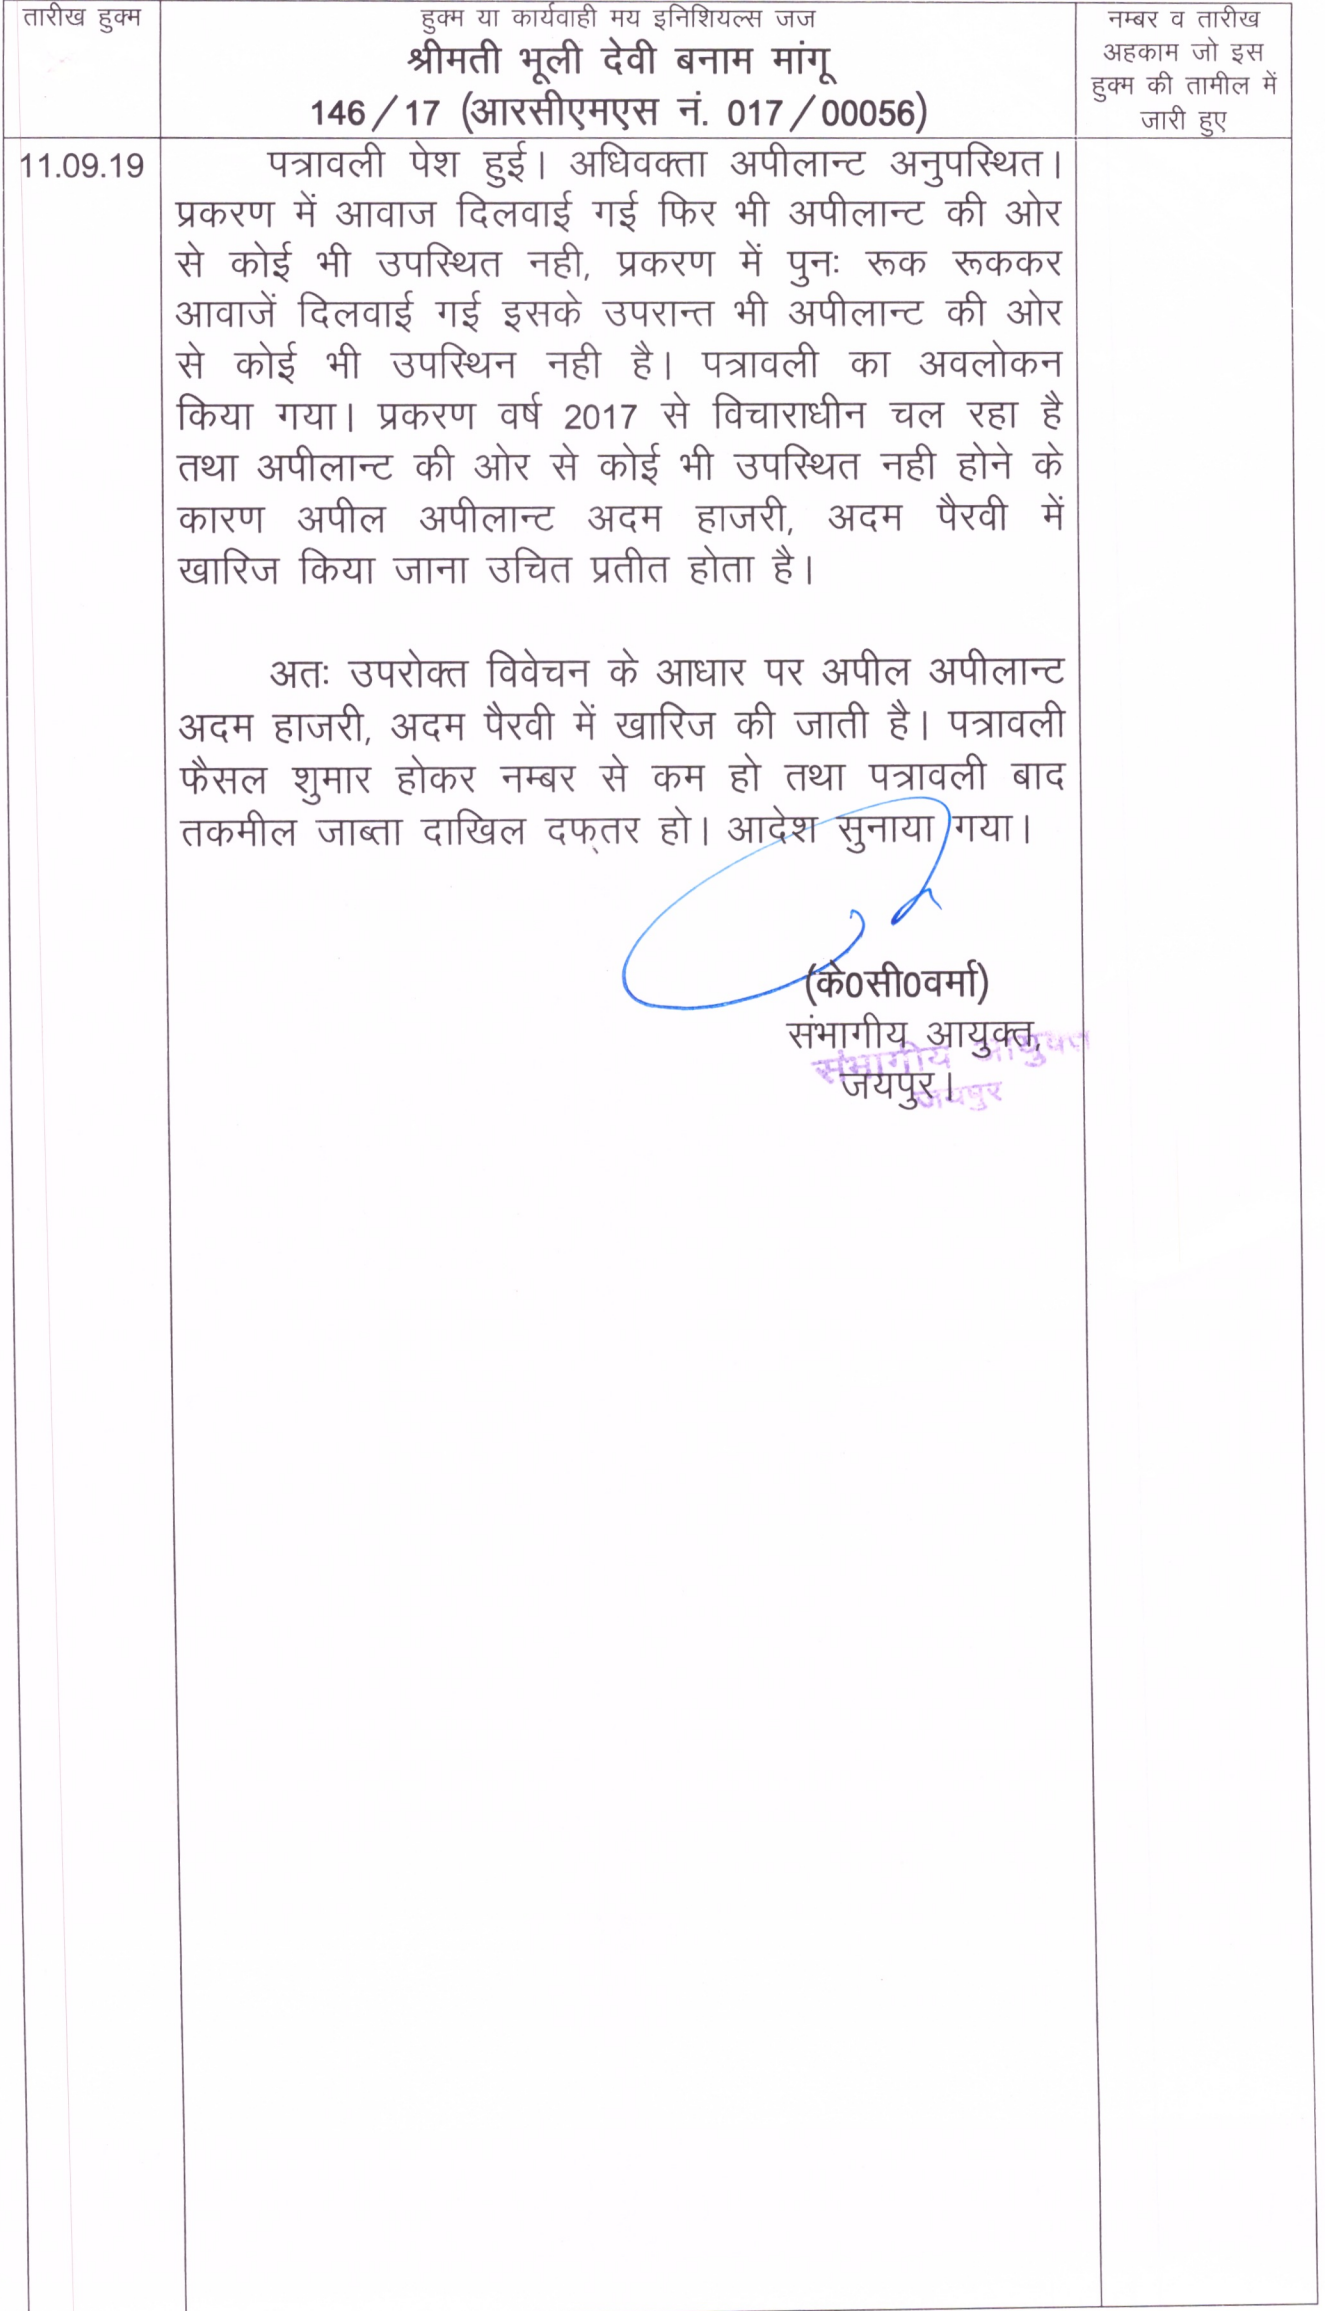 तारीख हुक्म
हुक्म या कार्यवाही मय इनिशियल्स जज
श्रीमती भूली देवी बनाम मांगू
146/17 (आरसीएमएस नं. 017/00056)
नम्बर व तारीख
अहकाम जो इस
हुक्म की तामील में
जारी हुए
11.09.19
पत्रावली पेश हुई। अधिवक्ता अपीलान्ट अनुपस्थित।
प्रकरण में आवाज दिलवाई गई फिर भी अपीलान्ट की ओर
से कोई भी उपस्थित नही, प्रकरण में पुनः रूक रूककर
आवाजें दिलवाई गई इसके उपरान्त भी अपीलान्ट की ओर
से कोई भी उपस्थिन नही है। पत्रावली का अवलोकन
किया गया। प्रकरण वर्ष 2017 से विचाराधीन चल रहा है
तथा अपीलान्ट की ओर से कोई भी उपस्थित नही होने के
कारण अपील अपीलान्ट अदम हाजरी, अदम पैरवी में
खारिज किया जाना उचित प्रतीत होता है।
अतः उपरोक्त विवेचन के आधार पर अपील अपीलान्ट
अदम हाजरी, अदम पैरवी में खारिज की जाती है। पत्रावली
फैसल शुमार होकर नम्बर से कम हो तथा पत्रावली बाद
तकमील जाब्ता दाखिल दफ्तर हो। आदेश सुनाया गया।
(के0सी0वर्मा)
संभागीय आयुक्त,
संभागीय आयुक्त
जयपुर।
जयपुर